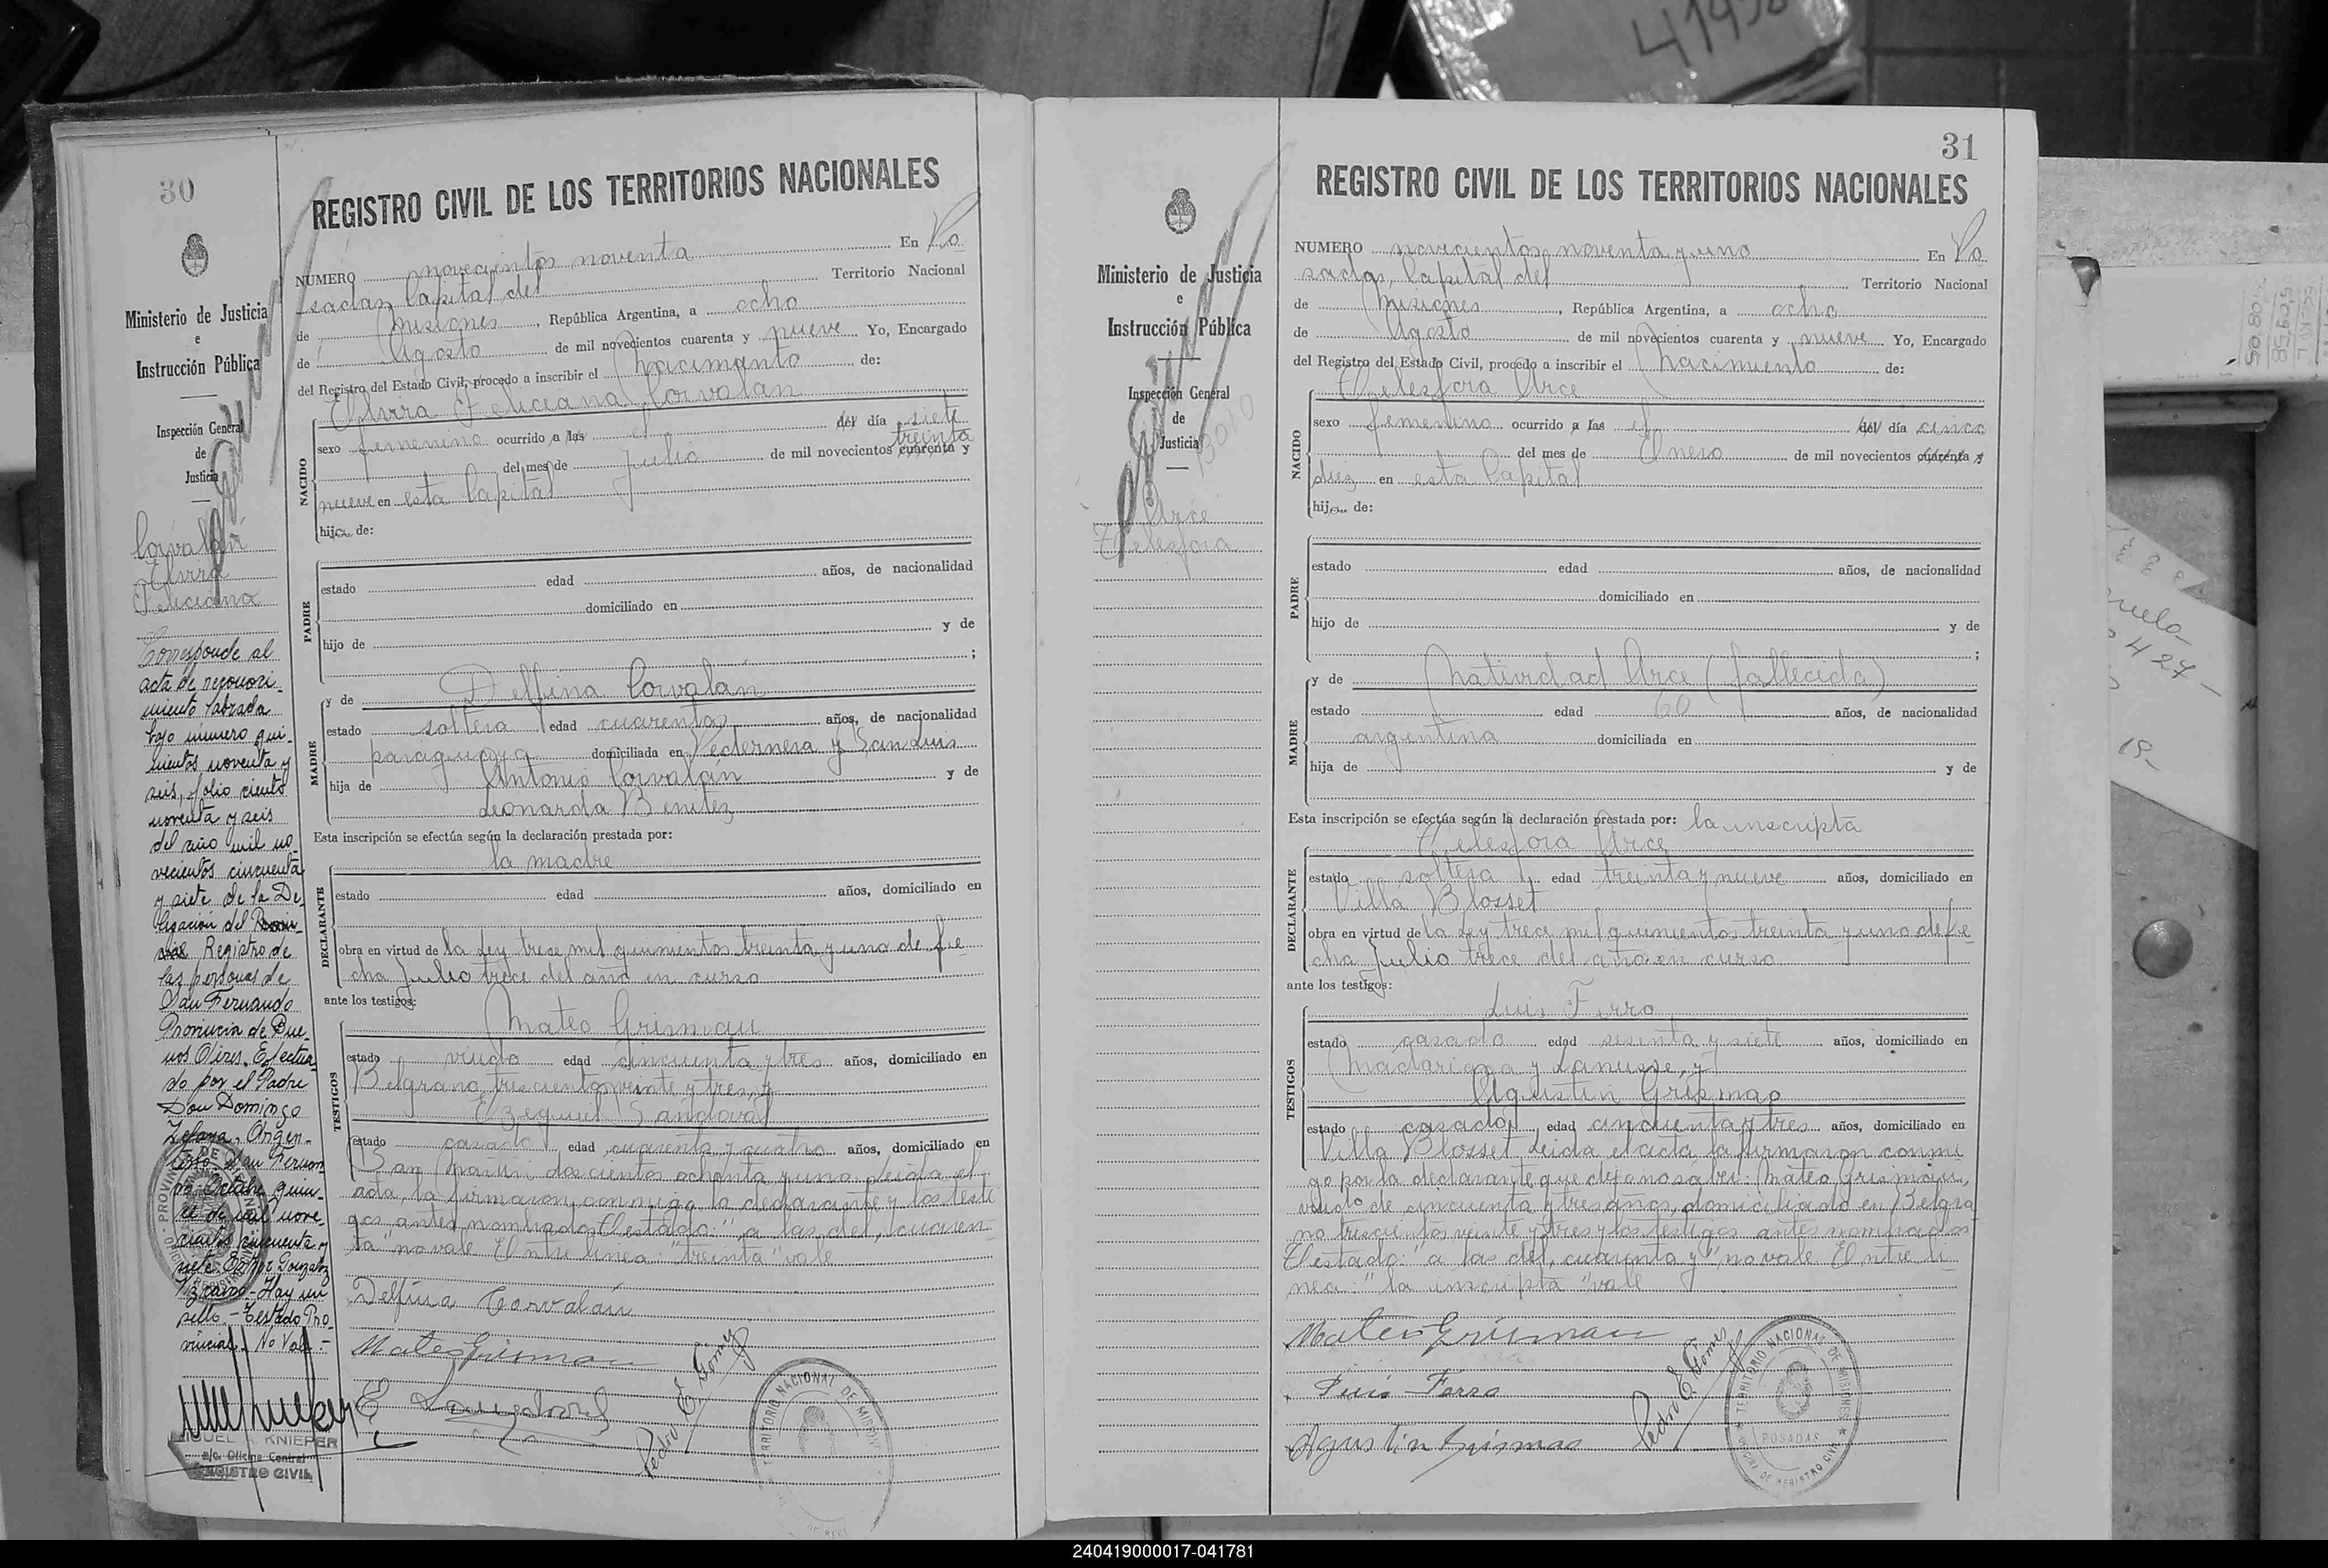 41958
30
Ministerio de Justicia
e
Instrucción Pública
Inspección General
de
Justicia
Corvalán
Elvira
Feliciana
Corresponde al
acta de reconoci-
miento labrada
bajo número qui-
nientos noventa y
seis, folio ciento
noventa y seis
del año mil no-
vecientos cincuenta
y siete de la De-
legación del Provin-
cial Registro de
las personas de
San Fernando
Provincia de Bue-
nos Aires. Efectua-
do por el Padre
Don Domingo
Argen-
San Fernan
do Octubre quin-
ce de mil nove-
cientos cincuenta y
siete
Hay un
sello. - Testado Pro-
vincial. No Vale -
MIGUEL A. KNIEPER
a/c. Oficina Central
REGISTRO CIVIL
REGISTRO CIVIL DE LOS TERRITORIOS NACIONALES
NUMERO novecientos noventa En Po
sadas, Capital del Territorio Nacional
de Misiones, República Argentina, a ocho
de Agosto de mil novecientos cuarenta y nueve Yo, Encargado
del Registro del Estado Civil, procedo a inscribir el nacimiento de:
Elvira Feliciana Corvalán
NACIDO
sexo femenino ocurrido a las el del día siete
treinta
del mes de Julio de mil novecientos cuarenta y
nueve en esta Capital
hija de:
PADRE
estado edad años, de nacionalidad
domiciliado en
hijo de y de
;
MADRE
y de Delfina Corvalán
estado soltera edad cuarenta años, de nacionalidad
paraguaya domiciliada en Pedernera y San Luis
hija de Antonio Corvalán y de
Leonarda Benítez
Esta inscripción se efectúa según la declaración prestada por:
la madre
DECLARANTE
estado edad años, domiciliado en
obra en virtud de la ley trece mil quinientos treinta y uno de fe
cha Julio trece del año en curso
ante los testigos:
TESTIGOS
Mateo Grismau
estado viudo edad cincuenta y tres años, domiciliado en
Belgrano trescientos veinte y tres, y
Ezequiel Sandoval
estado casado edad cuarenta y cuatro años, domiciliado en
San Martín doscientos ochenta y uno. Leida el
acta, la firmaron conmigo la declarante y los testi
gos antes nombrados. Testado: "a las del, cuaren-
ta" no vale. Entre línea: "treinta" vale
Delfina Corvalán
Mateo Grismau
E Sandoval
Pedro E Gomez
TERRITORIO NACIONAL DE MISIONES
31
Ministerio de Justicia
e
Instrucción Pública
Inspección General
de
Justicia
13010
Arce
Telesfora
REGISTRO CIVIL DE LOS TERRITORIOS NACIONALES
NUMERO novecientos noventa y uno En Po
sadas, Capital del Territorio Nacional
de Misiones, República Argentina, a ocho
de Agosto de mil novecientos cuarenta y nueve Yo, Encargado
del Registro del Estado Civil, procedo a inscribir el nacimiento de:
Telesfora Arce
NACIDO
sexo femenino ocurrido a las el del día cinco
del mes de Enero de mil novecientos cuarenta y
diez en esta Capital
hija de:
PADRE
estado edad años, de nacionalidad
domiciliado en
hijo de y de
;
MADRE
y de Natividad Arce (fallecida)
estado edad 60 años, de nacionalidad
argentina domiciliada en
hija de y de
Esta inscripción se efectúa según la declaración prestada por: la inscripta
Telesfora Arce
DECLARANTE
estado soltera edad treinta y nueve años, domiciliado en
Villa Blosset
obra en virtud de la ley trece mil quinientos treinta y uno de fe
cha Julio trece del año en curso
ante los testigos:
TESTIGOS
Luis Ferro
estado casado edad sesenta y siete años, domiciliado en
Madariaga y Lanusse, y
Agustin Grismao
estado casado edad cincuenta y tres años, domiciliado en
Villa Blosset. Leida el acta la firmaron conmi
go por la declarante que dijo no saber: Mateo Grismau,
viudo de cincuenta y tres años, domiciliado en Belgra
no trescientos veinte y tres y los testigos antes nombrados
Testado: "a las del, cuarenta y" no vale. Entre li
nea: "la inscripta" vale
Mateo Grismau
Luis Ferro
Agustin Grismao
Pedro E Gomez
TERRITORIO NACIONAL DE MISIONES
POSADAS
OFICINA DE REGISTRO CIVIL
240419000017-041781